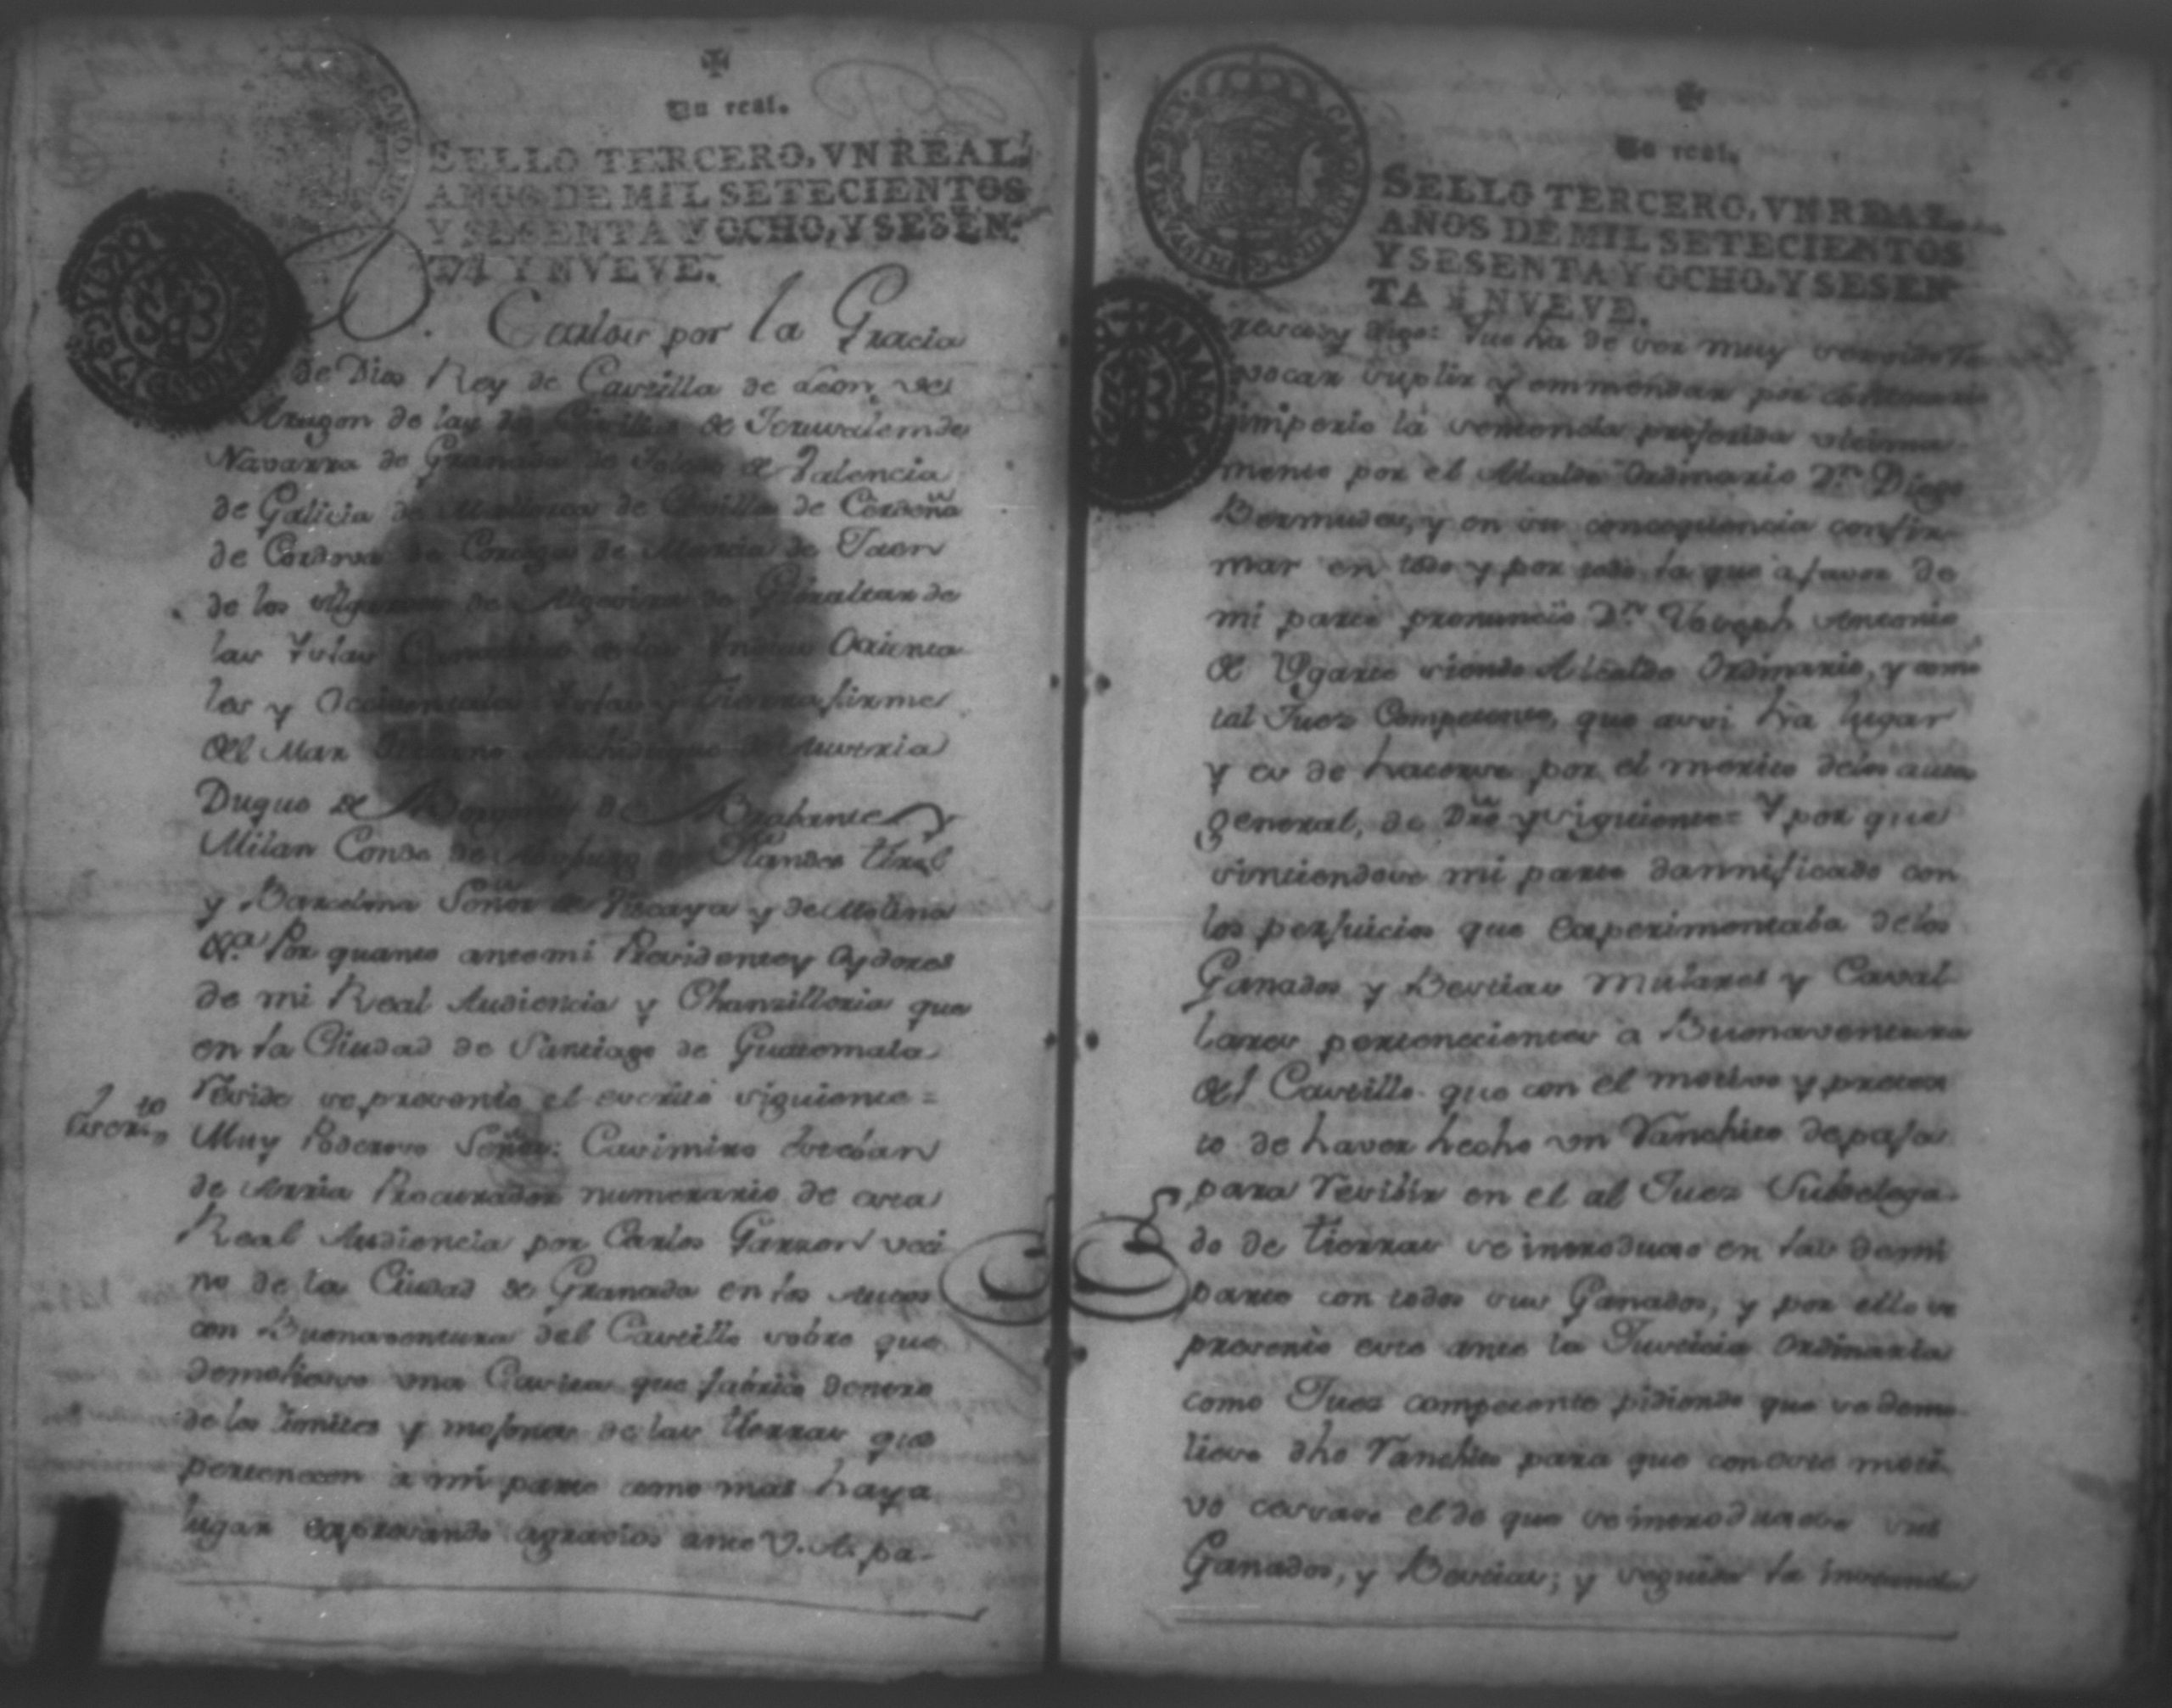 Un real.
SELLO TERCERO, VN REAL,
AÑOS DE MIL SETECIENTOS
Y SESENTA Y OCHO, Y SESEN-
TA Y NVEVE.
D. Carlos por la Gracia
de Dios Rey de Castilla de Leon, de
Aragon de las dos Sicilias de Jerusalem de
Navarra de Granada de Toledo de Valencia
de Galicia de Mallorca de Sevilla de Cerdeña
de Cordova de Corcega de Murcia de Jaen
de los Algarves de Algecira de Gibraltar de
las Yslas de Canaria de las Yndias Orienta
les y Occidentales Yslas y Tierra firme
del Mar Occeano Archiduque de Austria
Duque de Borgoña de Brabante y
Milan Conde de Abspurg de Flandes Tirol
y Barcelona Señor de Viscaya y de Molina
&a. Por quanto ante mi Presidente y Oydores
de mi Real Audiencia y Chanzilleria que
en la Ciudad de Santiago de Guatemala
reside se presentó el escrito siguiente =
Escrito
Muy Poderoso Señor: Casimiro Esteban
de Arria Procurador numerario de esta
Real Audiencia por Carlos Garzon veci
no de la Ciudad de Granada en los Autos
con Buenaventura del Castillo sobre que
demoliese una Casita que fabricó dentro
de los limites y mojones de las tierras que
pertenecen a mi parte como mas haya
lugar expresando agravios ante V. A. pa-
66
Un real.
SELLO TERCERO, VN REAL,
AÑOS DE MIL SETECIENTOS
Y SESENTA Y OCHO, Y SESEN
TA Y NVEVE.
resco y digo: Que ha de ser muy servido re
vocar suplir y emmendar por contrario
imperio la sentencia proferida ultima
mente por el Alcalde Ordinario Dn. Diego
Bermudes, y en su concequencia confir
mar en todo y por todo la que a favor de
mi parte pronunció Dn. Joseph Antonio
de Ugarte siendo Alcalde Ordinario, y como
tal Juez Competente, que assi ha lugar
y es de hacerse por el merito de los autos
general, de Dro y siguiente = Y por que
sintiendose mi parte dannificado con
los perjuicios que experimentaba de los
Ganados y Bestias mulares y Caval
lares pertenecientes a Buenaventura
del Castillo que con el motivo y pretex
to de haver hecho un Ranchito de paja
para recibir en el al Juez Subdelega-
do de tierras se introdujo en las de mi
parte con todos sus Ganados, y por ello se
presentó este ante la Justicia Ordinaria
como Juez competente pidiendo que se demo
liese dho Ranchito para que con este moti
vo cessase el de que se introdujesse sus
Ganados, y Bestias; y seguida la instancia